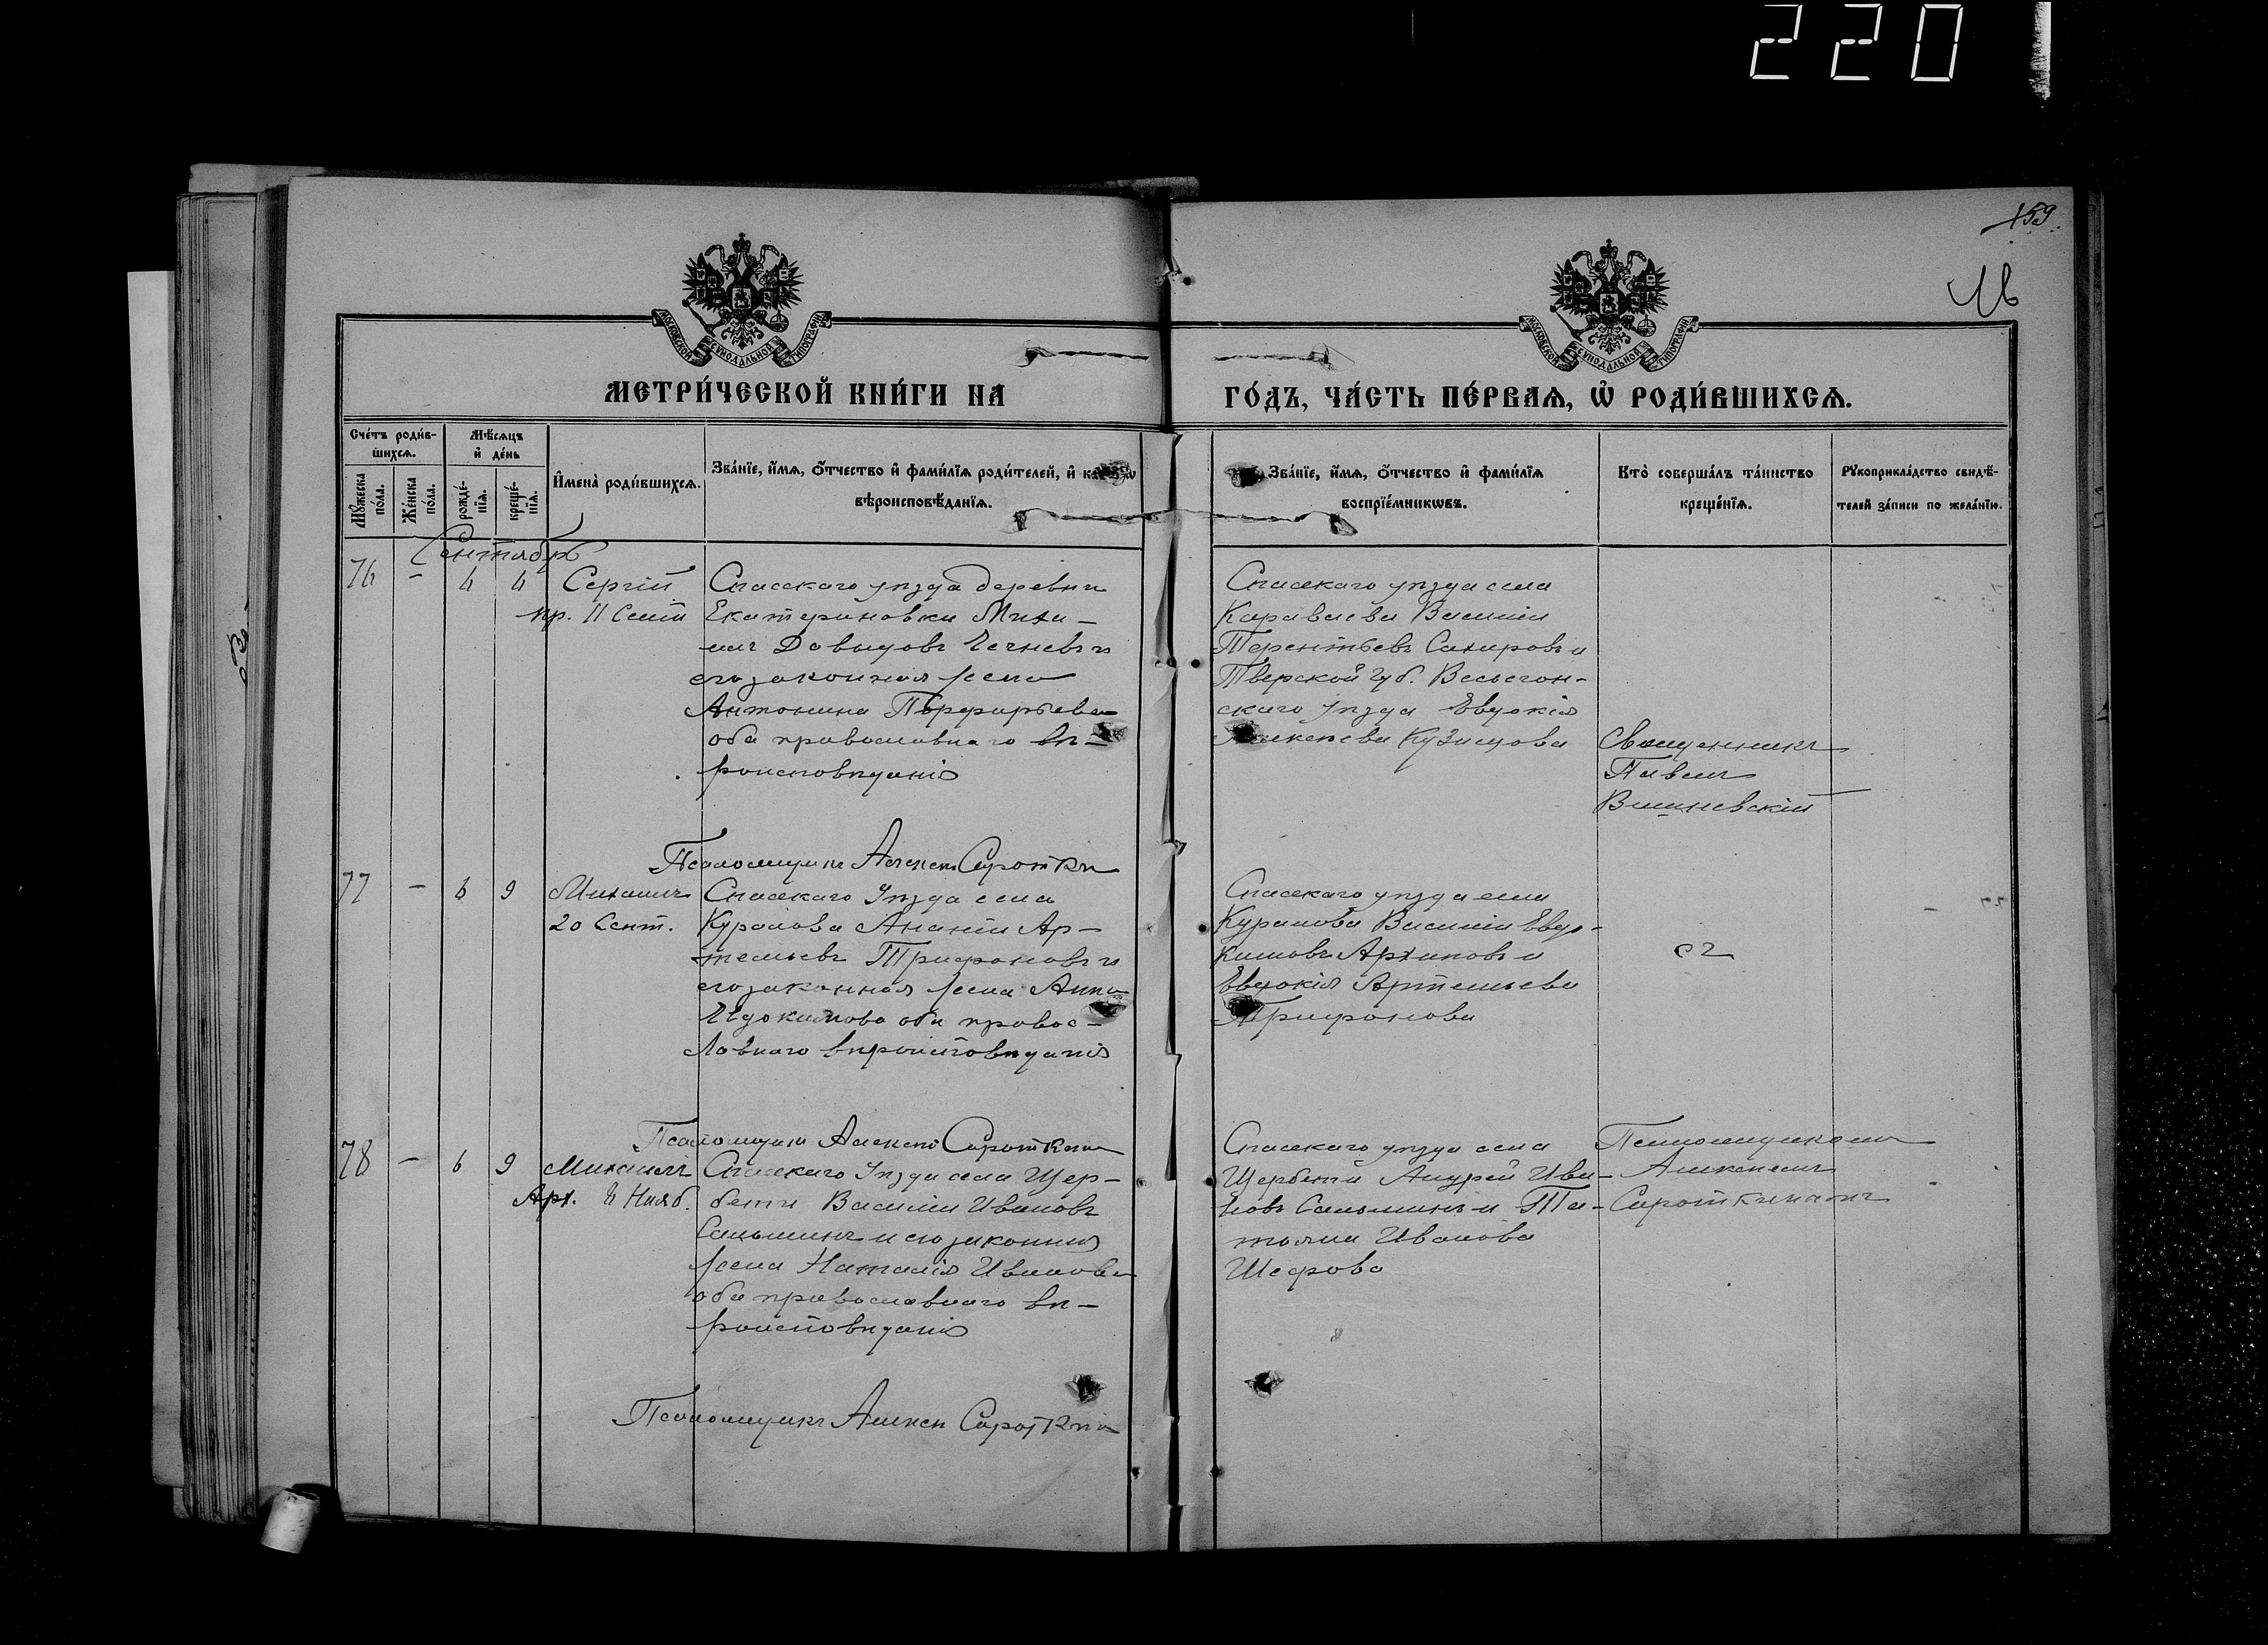 220
159
16
МОСКОВСКОЙ СѴНОДАЛЬНОЙ ТИПОГРАФІИ
МОСКОВСКОЙ СѴНОДАЛЬНОЙ ТИПОГРАФІИ
МЕТРИ́ЧЕСКОЙ КНИ́ГИ НА
ГО́ДЪ, ЧА́СТЬ ПЕ́РВАѦ, Ѡ҆ РОДИ́ВШИХСѦ.
Сче́тъ роди́в-
шихсѧ.
Мѣ́сѧцъ
и҆ де́нь
Мꙋ́жеска
по́ла.
Же́нска
по́ла.
рожде́-
нїѧ.
креще́-
нїѧ.
И҆мена̀ роди́вшихсѧ.
Зва́нїе, и҆́мѧ, ѻ҆́тчество и҆ фами́лїѧ роди́телей, и҆
вѣроисповѣ́данїѧ.
Зва́нїе, и҆́мѧ, ѻ҆́тчество и҆ фами́лїѧ
воспрїе́мникѡвъ.
Кто̀ соверша́лъ та́инство
креще́нїѧ.
Рꙋкоприкла́дство свидѣ́-
телей за́писи по жела́нїю.
Сентябрь
76 - 4 4 Сергій
пр. 11 Сент
Спасскаго уѣзда деревни
Екатериновки Миха-
илъ Давыдовъ и
его законная жена
Антонина Порфирьева
оба православнаго вѣ-
роисповѣданія
Псаломщикъ Алексѣй Сироткинъ
Спасскаго уѣзда села
Караваева Василій
Терентьевъ Сахаровъ и
Тверской губ. Весьегон-
скаго уѣзда Евдокія
Алексѣева Кузнецова
Священникъ
Павелъ
Вишневскій
77 - 6 9 Михаилъ
20 Сент.
Спасскаго Уѣзда села
Куралова Ананій Ар-
темьевъ Трифоновъ и
его законная жена Анна
Евдокимова оба правос-
лавнаго вѣроисповѣданія
Псаломщикъ Алексѣй Сироткинъ
Спасскаго уѣзда села
Куралова Василій Евдо-
кимовъ Архиповъ и
Евдокія Артемьева
Трифонова
78 - 6 9 Михаилъ
Арх. 8 Нояб.
Спасскаго Уѣзда села Щер-
бети Василій Ивановъ
Сальминъ и его законная
жена Наталія Иванова
оба православнаго вѣ-
роисповѣданія
Псаломщикъ Алексѣй Сироткинъ
Спасскаго уѣзда села
Щербетй Андрей Ива-
новъ Сальминъ и Та-
тьяна Иванова
Шефрова
Псаломщикомъ
Алексѣемъ
Сироткинымъ